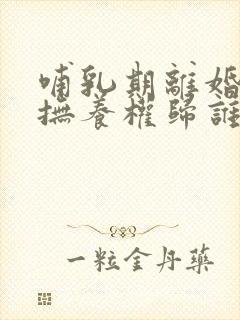 哺乳期離婚
撫養權歸誰
一粒金丹藥